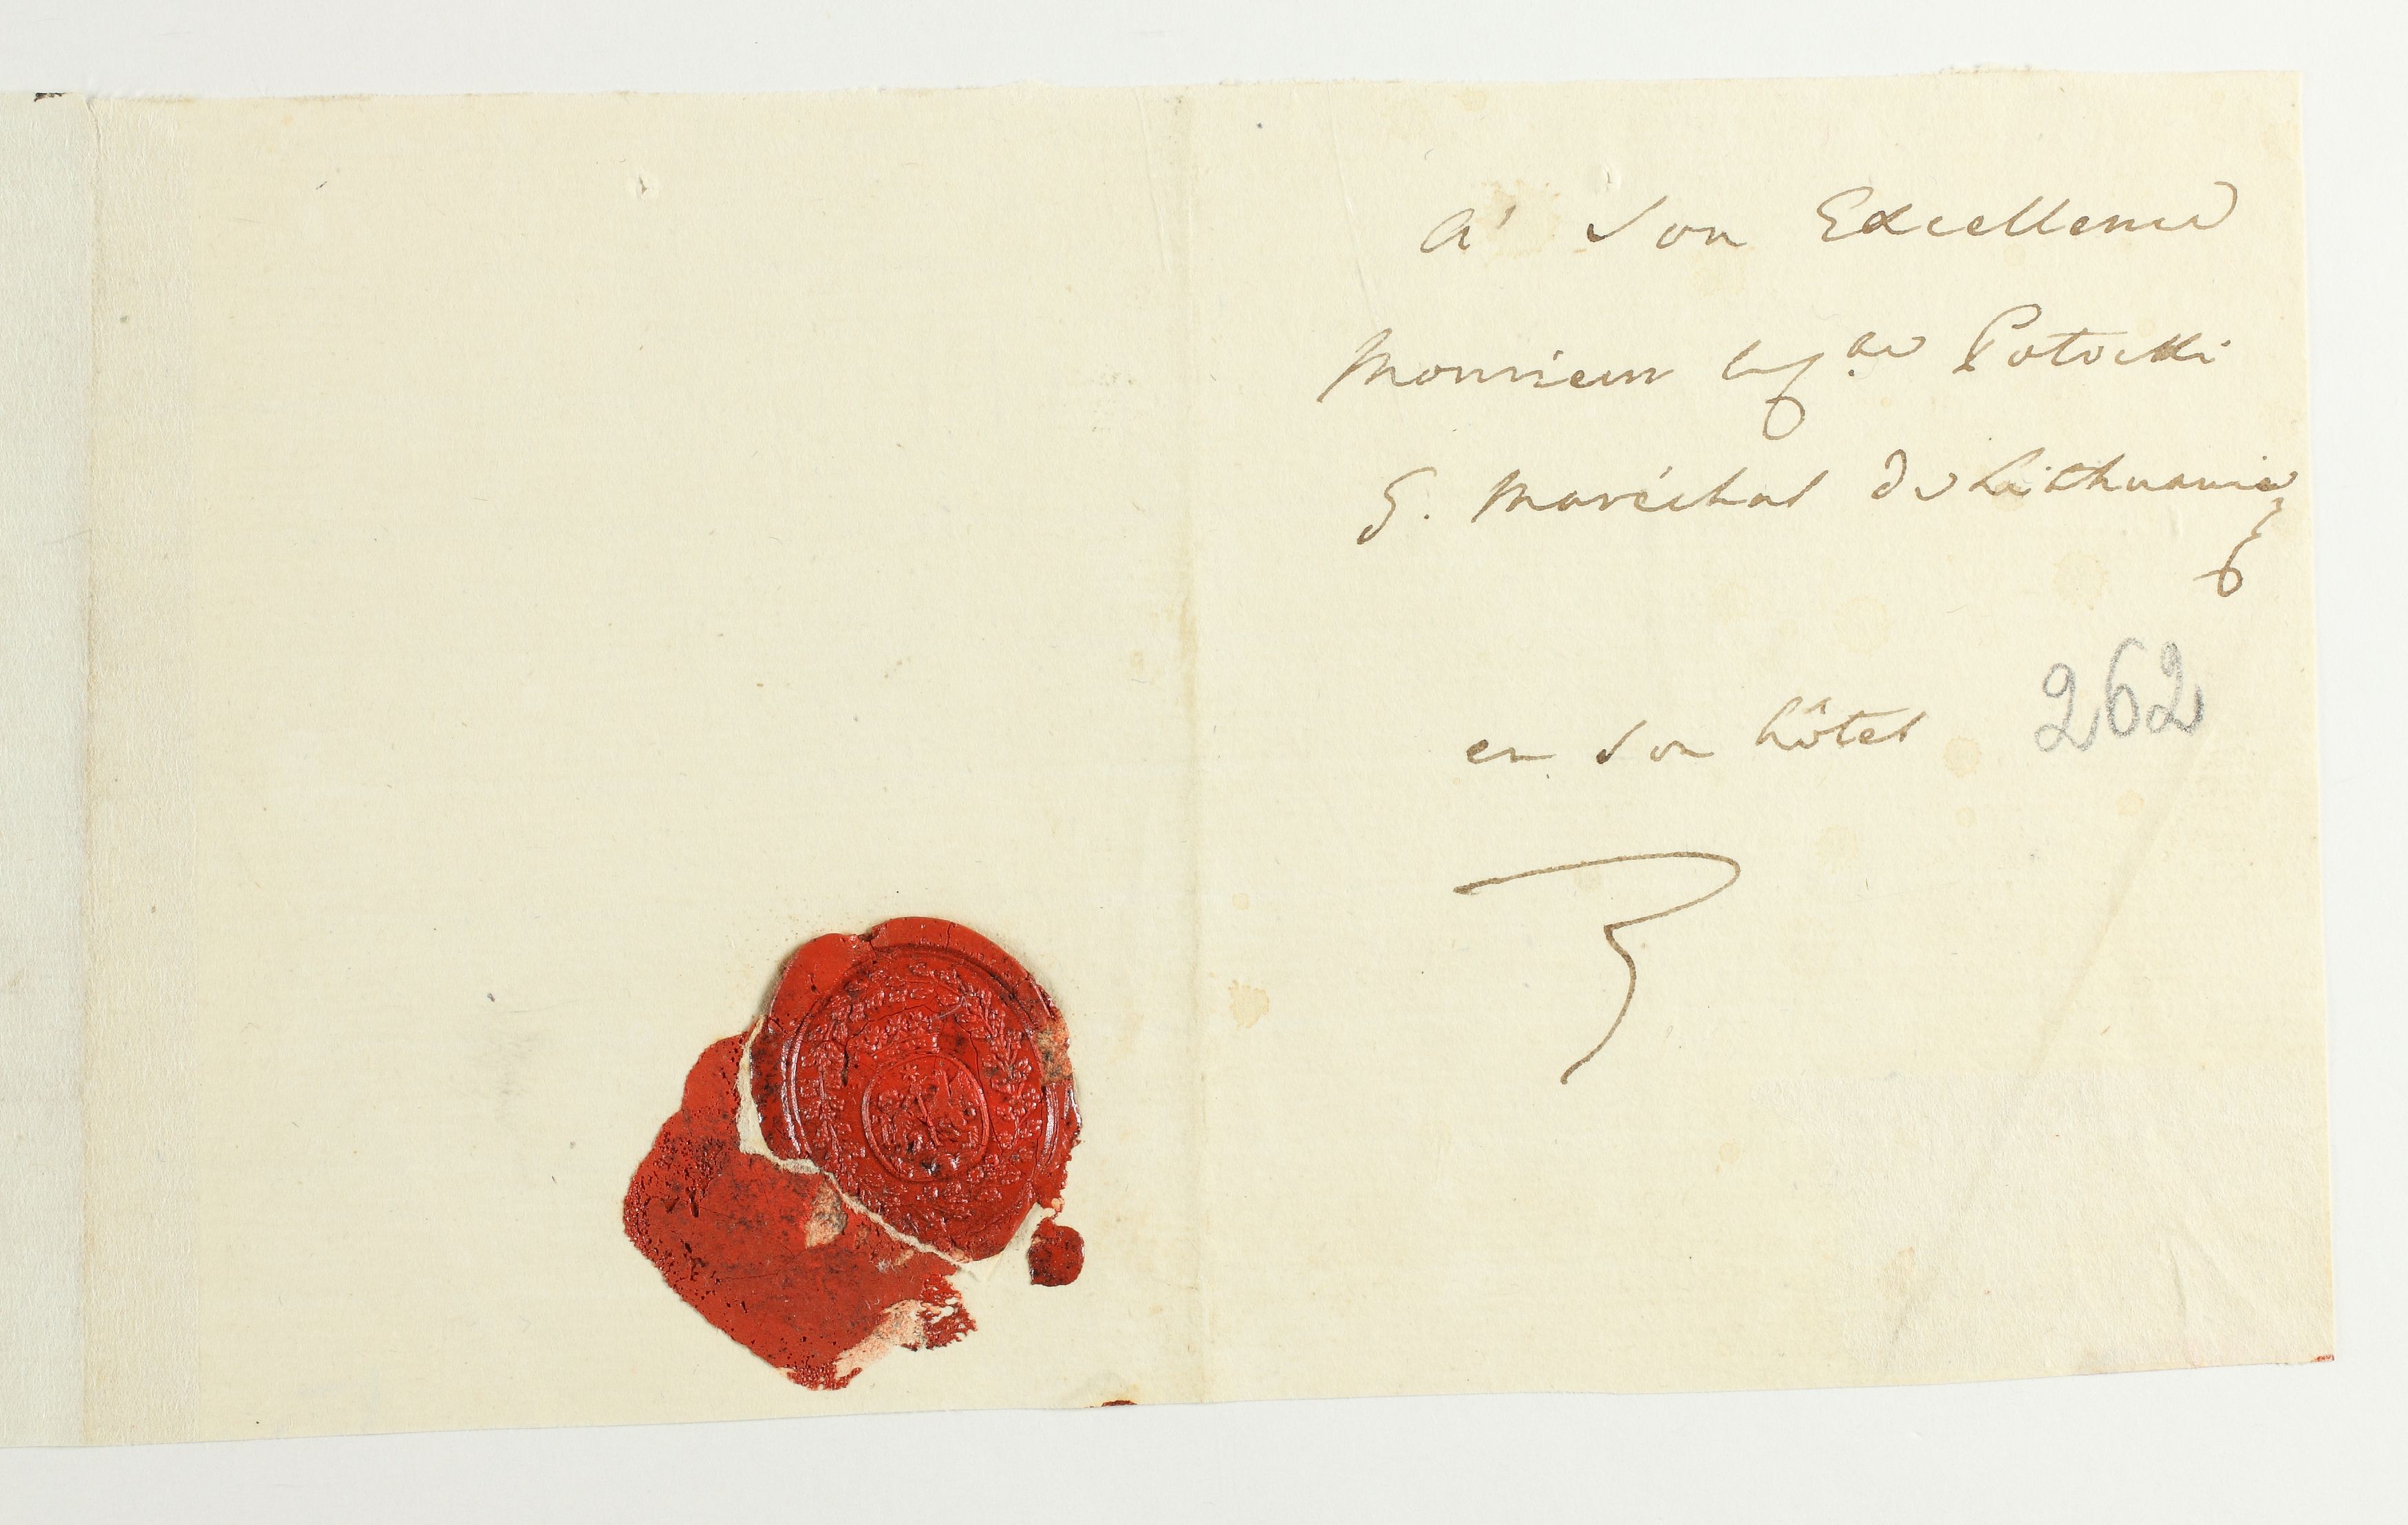 à Son Excellence
Monsieur le Potocki
G. Maréchal de Lithuanie
262
en son hôtel